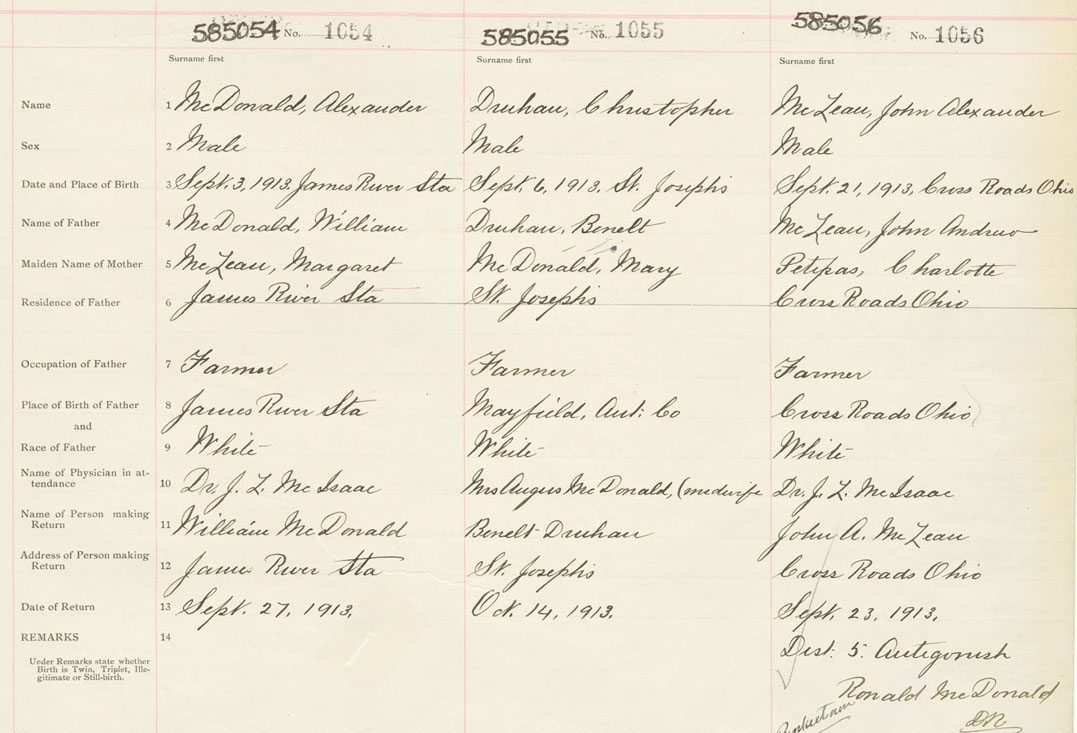 585054 No. 1054 585055 No. 1055 585056 No. 1056
Surname first Surname first Surname first
Name 1 McDonald, Alexander Druhan, Christopher McLean, John Alexander
Sex 2 Male Male Male
Date and Place of Birth 3 Sept. 3, 1913, James River Sta Sept. 6, 1913, St. Josephs Sept. 21, 1913, Cross Roads Ohio
Name of Father 4 McDonald, William Druhan, Benelt McLean, John Andrew
Maiden Name of Mother 5 McLean, Margaret McDonald, Mary Petipas, Charlotte
Residence of Father 6 James River Sta St. Josephs Cross Roads Ohio
Occupation of Father 7 Farmer Farmer Farmer
Place of Birth of Father 8 James River Sta Mayfield, Ant. Co Cross Roads Ohio
and
Race of Father 9 White White White
Name of Physician in at-
tendance 10 Dr. J. L. McIsaac Mrs Angus McDonald, (midwife Dr. J. L. McIsaac
Name of Person making
Return 11 William McDonald Benelt Druhan John A. McLean
Address of Person making
Return 12 James River Sta St. Josephs Cross Roads Ohio
Date of Return 13 Sept. 27, 1913. Oct. 14, 1913. Sept. 23, 1913.
REMARKS 14
Dist. 5. Antigonish
Under Remarks state whether
Birth is Twin, Triplet, Ille-
gitimate or Still-birth.
Ronald McDonald
DR